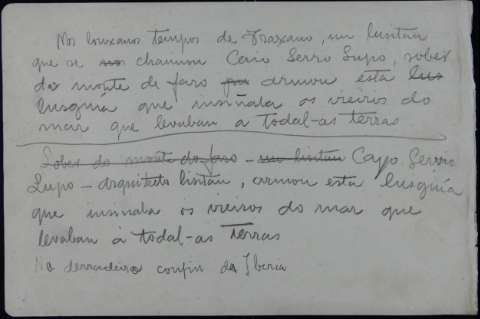 Nos louxanos tempos de Traxano, un lusitan
que se chamou Caio Serro Lupo, sobes
do monte de faro ergueu esta
lusquía que insiñala os vieiros do
mar que levaban a todal-as terras
Sobes do monte do faro - un lusitan Cayo Servio
Lupo - arquitecto lusitán, ergueu esta lusquía
que insinala os vieiros do mar que
levaban á todal-as terras
No derradeiro confin da Iberia